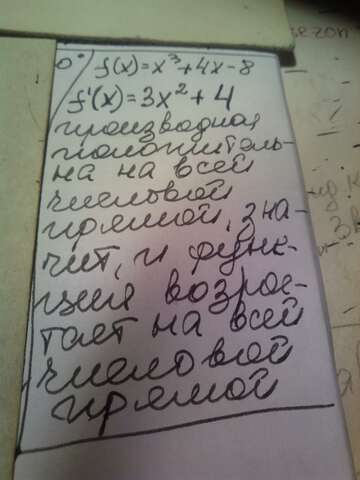 0° f(x)=x³+4x-8
f'(x)=3x²+4
производная
положитель-
на на всей
числовой
прямой, зна-
чит, и функ-
ция возрос-
тает на всей
числовой
прямой